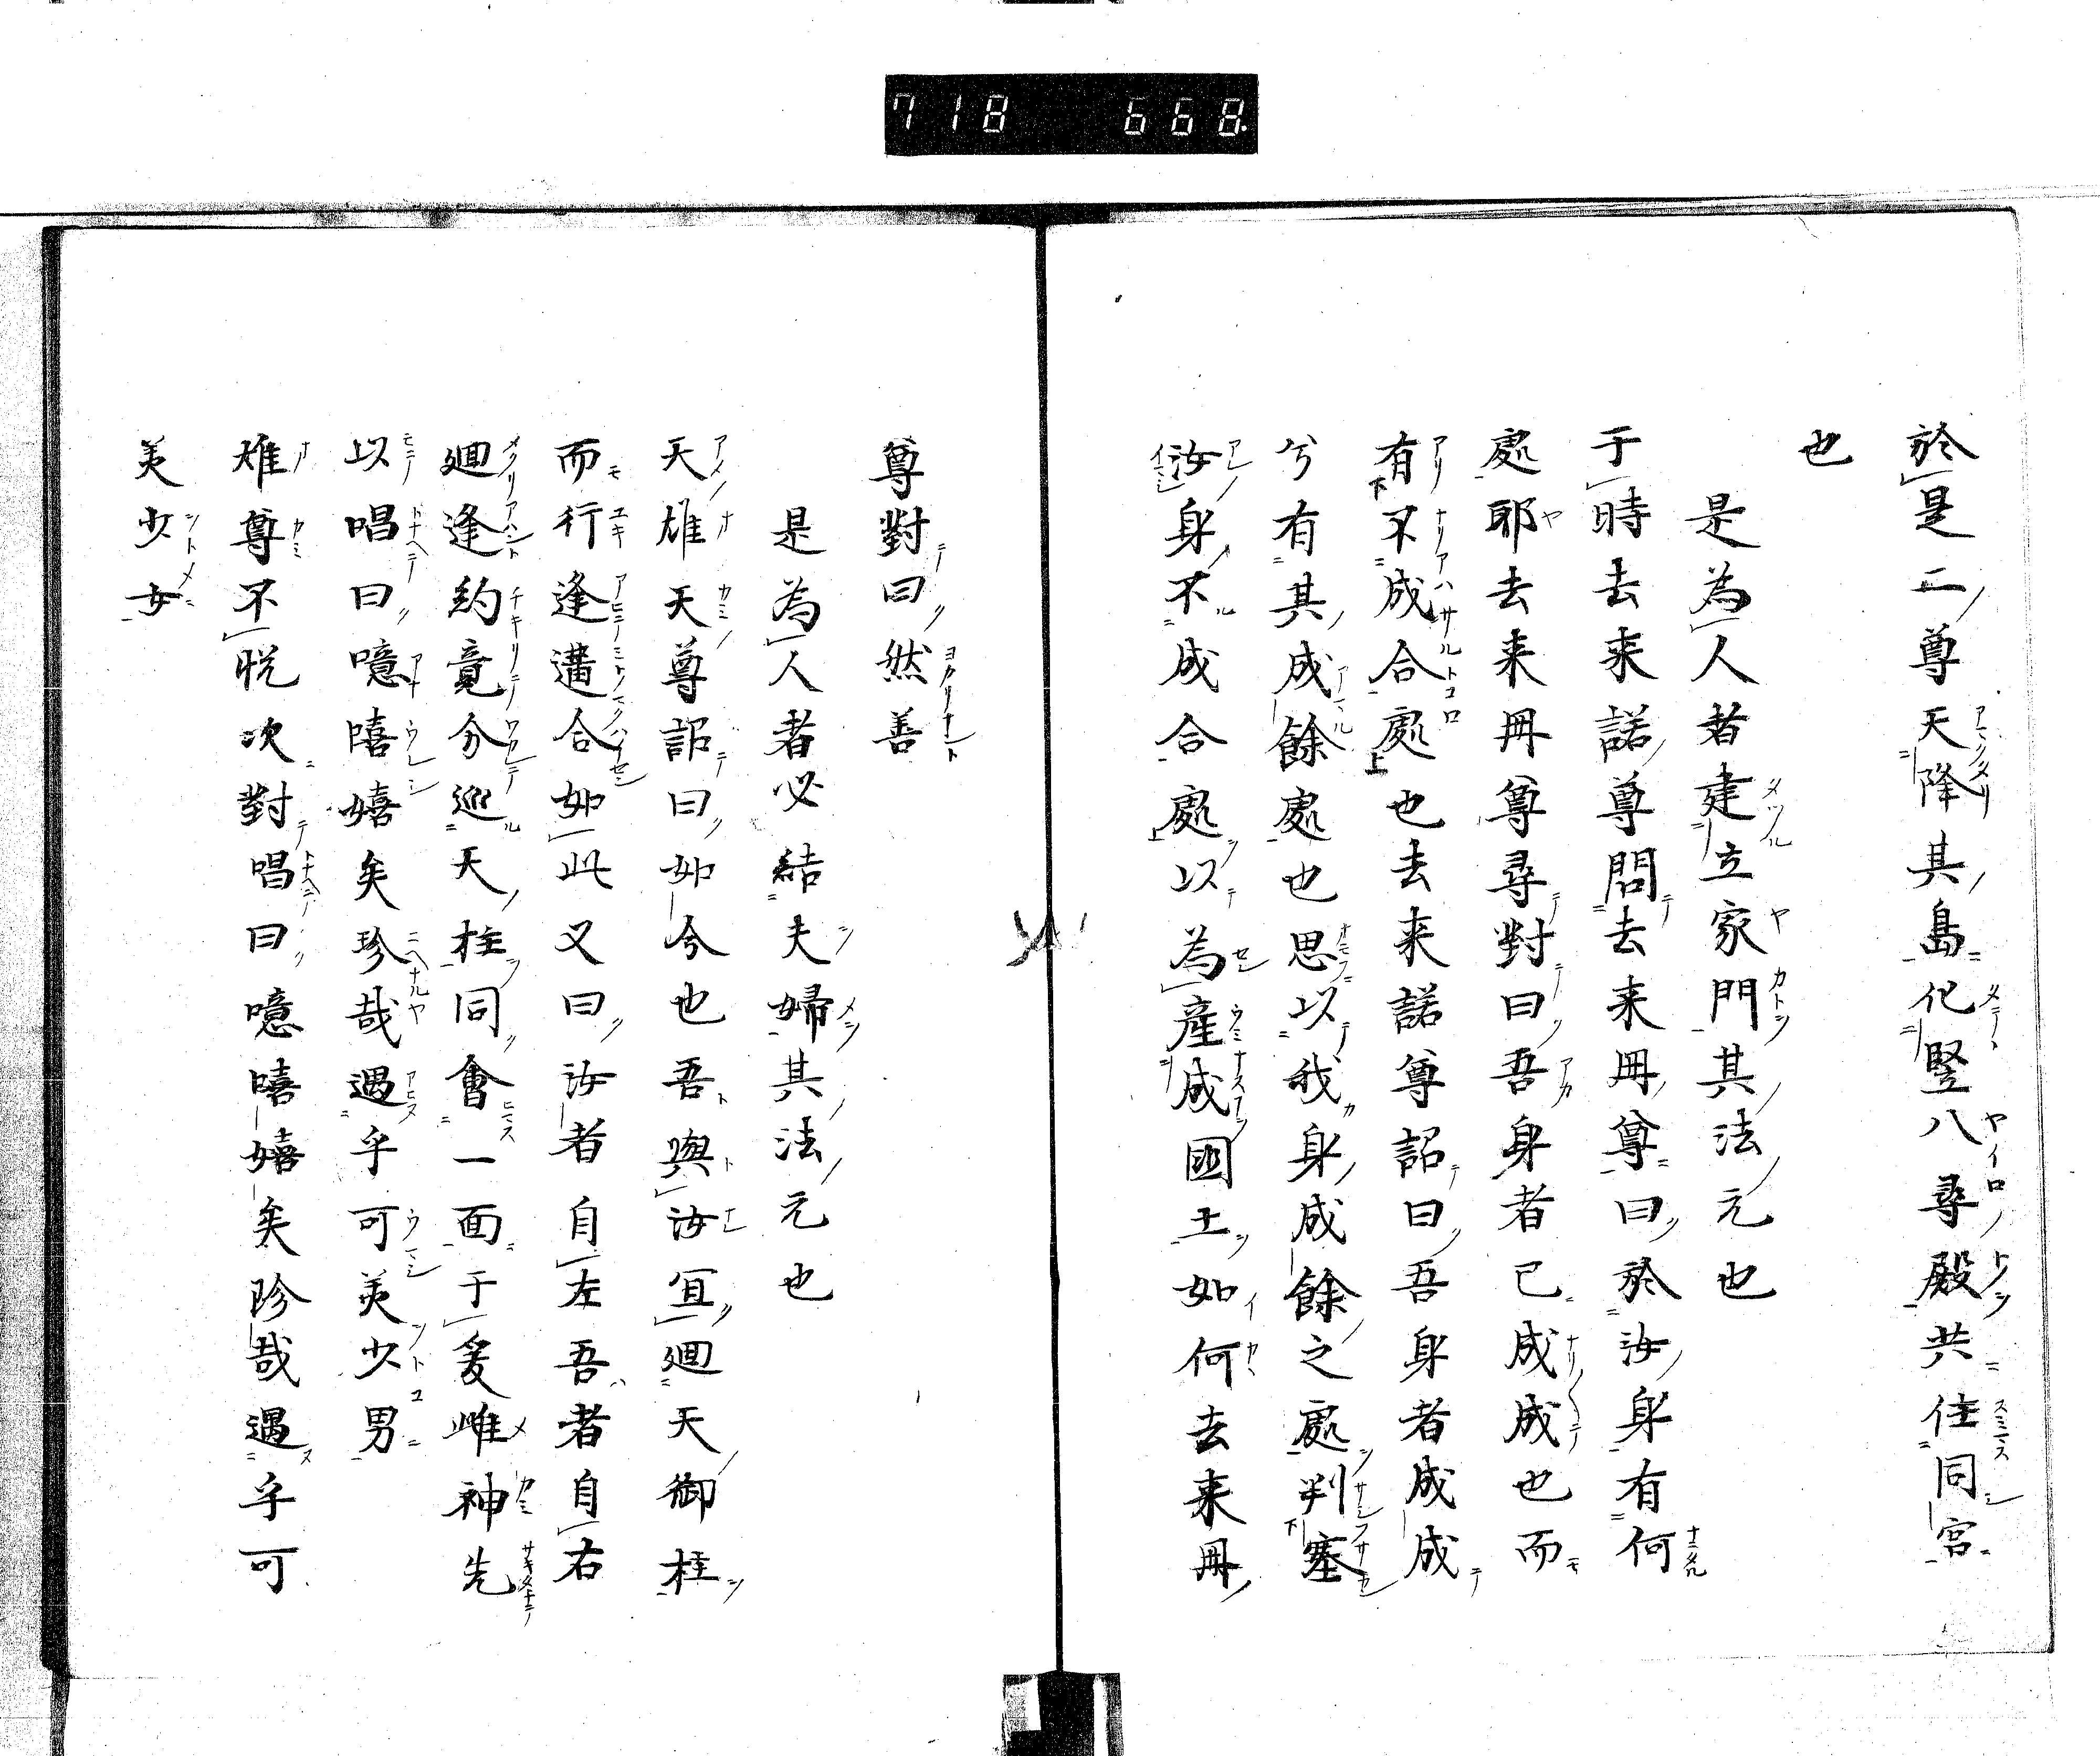 718 668.
於是二尊天降其島化竪八尋殿共住同宮
也
是為人者建立家門其法元也
于時去来諾尊問去来冊尊曰於汝身有何
處耶去来冊尊尋對曰吾身者已成成也而
有不成合處也去来諾尊詔曰吾身者成成
兮有其成餘處也思以我身成餘之處判塞
汝身不成合處以為産成國土如何去来冊
尊對曰然善
是為人者必結夫婦其法元也
天雄天尊詔曰如今也吾與汝宜廻天御柱
而行逢遘合如此又曰汝者自左吾者自右
廻逢約竟分巡天柱同會一面于爰雌神先
以唱曰噫嘻嬉矣珍哉遇乎可美少男
雄尊不悦次對唱曰噫嘻嬉矣珍哉遇乎可
美少女